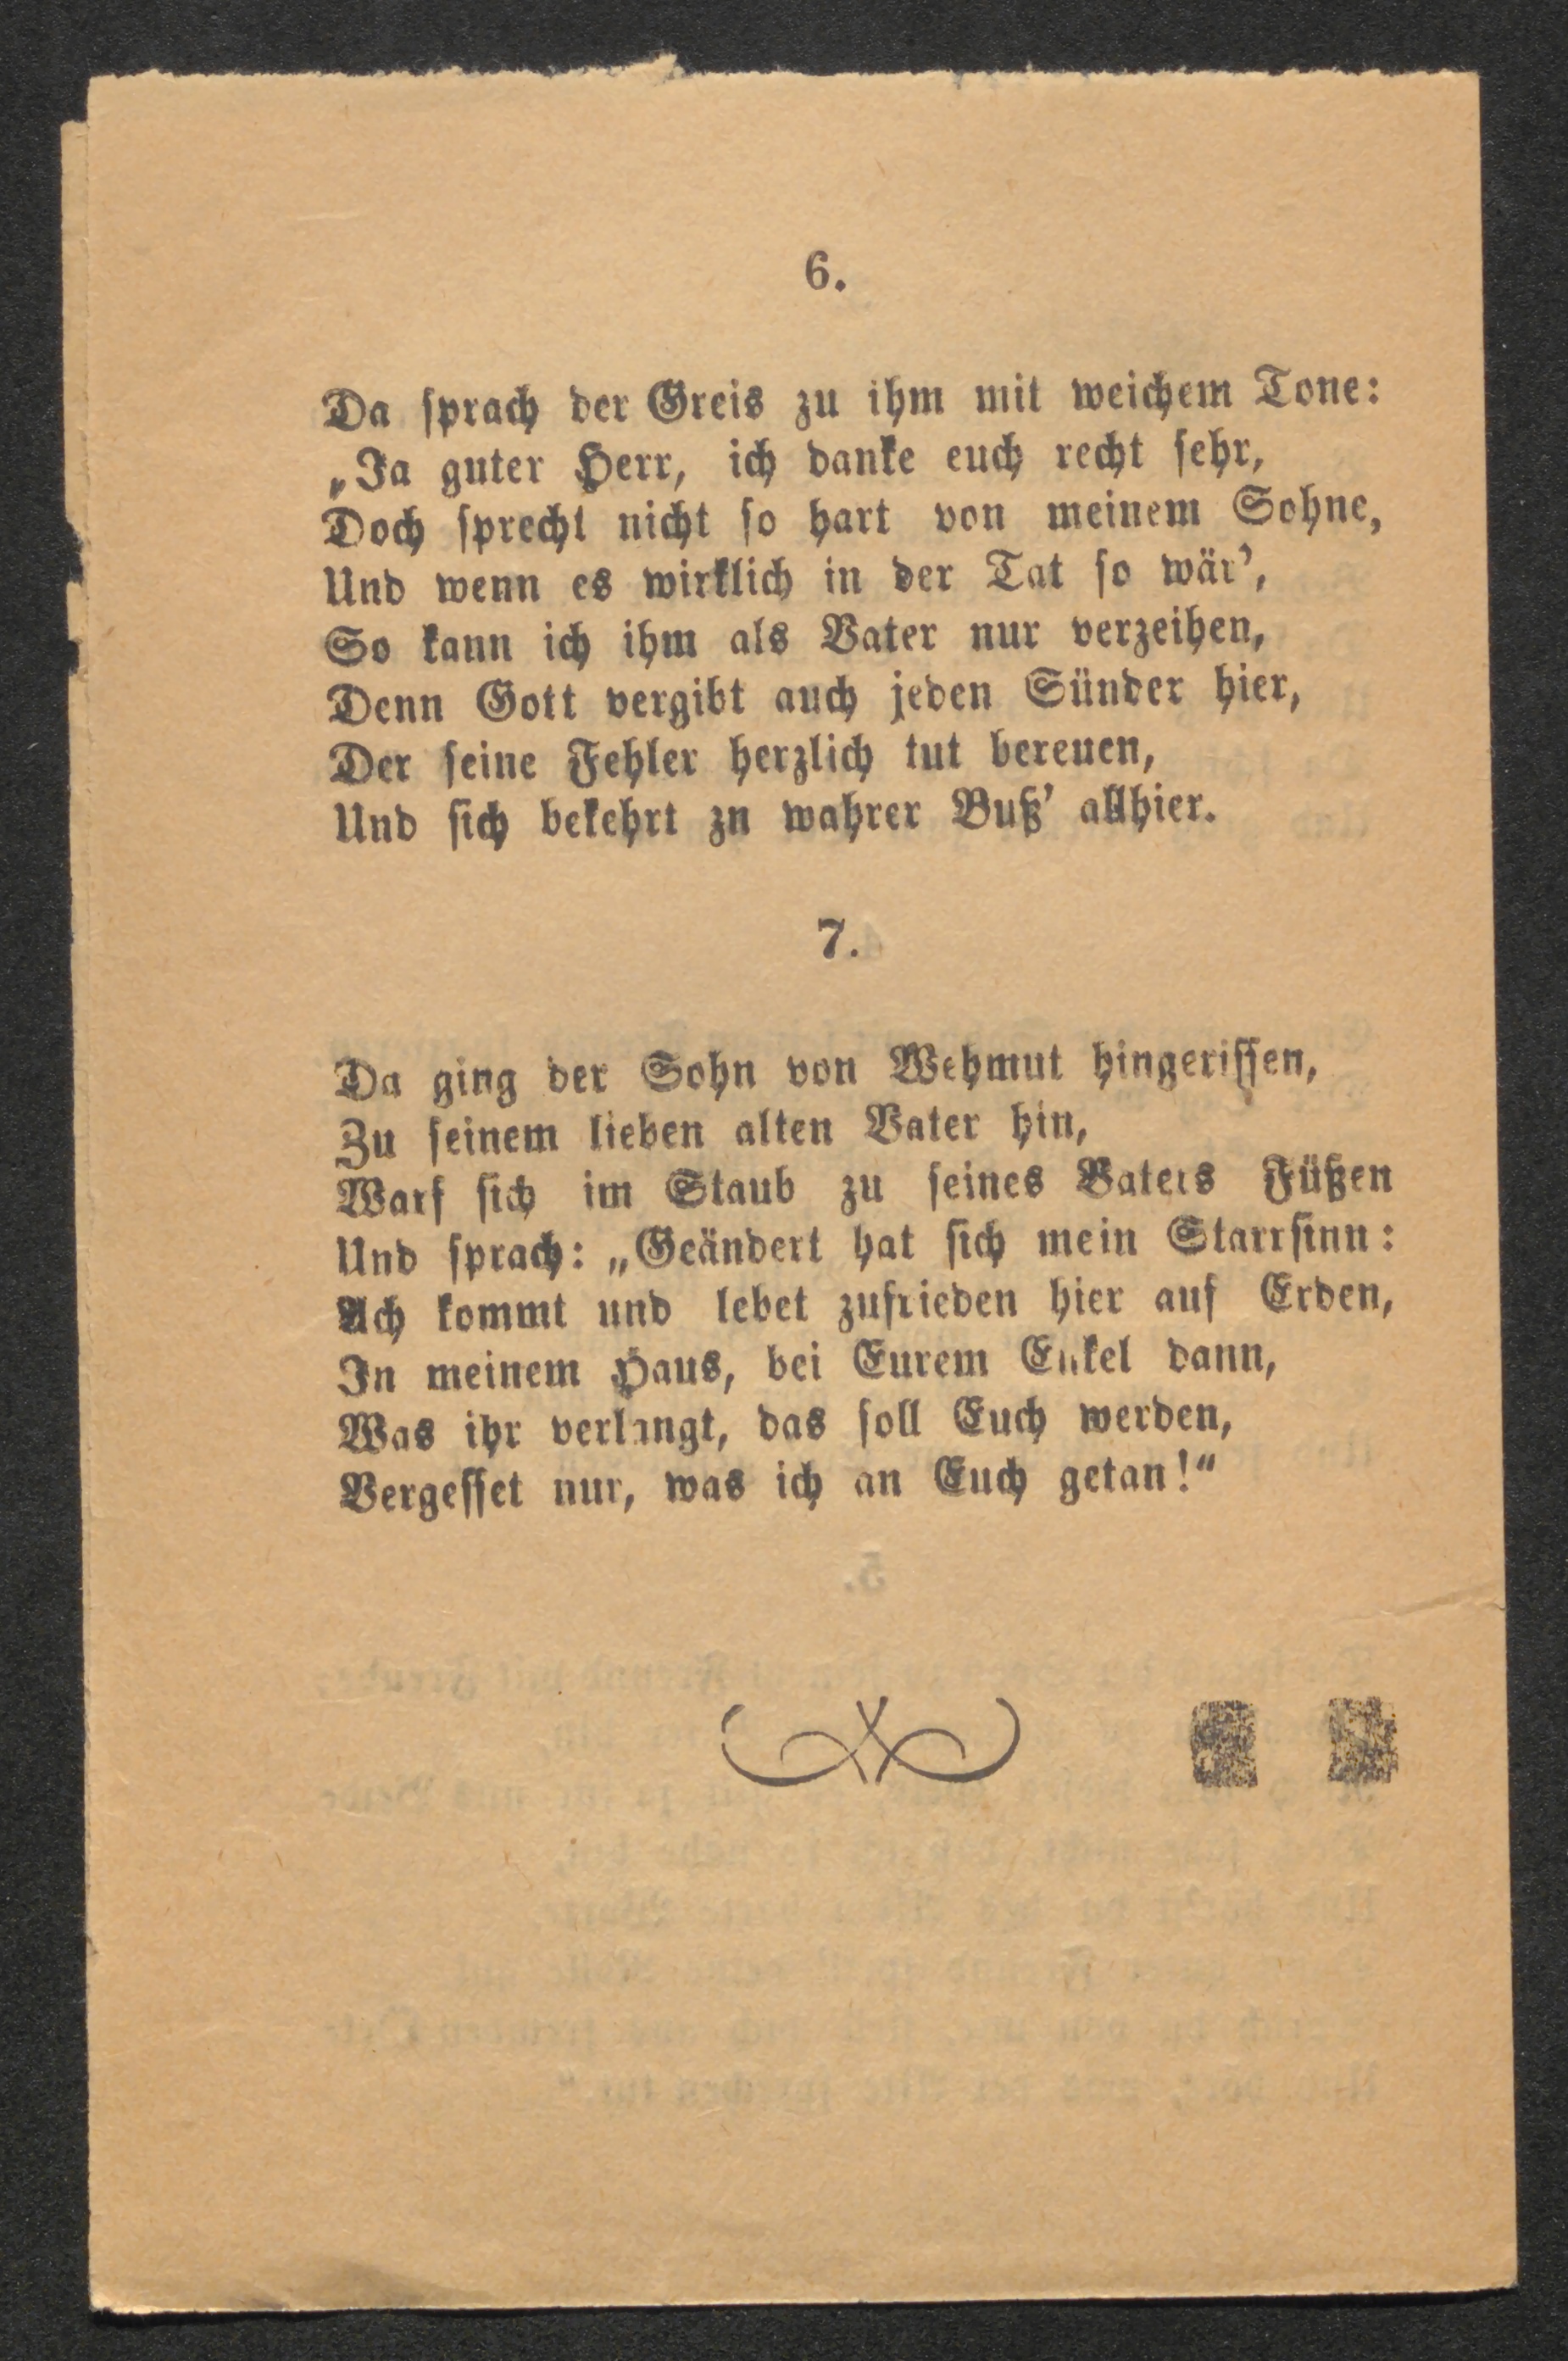 6.
Da sprach der Greis zu ihm mit weichem Tone:
„Ja guter Herr, ich danke euch recht sehr,
Doch sprecht nicht so hart von meinem Sohne,
Und wenn es wirklich in der Tat so wär’,
So kann ich ihm als Vater nur verzeihen,
Denn Gott vergibt auch jeden Sünder hier,
Der seine Fehler herzlich tut bereuen,
Und sich bekehrt zu wahrer Buß’ allhier.
7.
Da ging der Sohn von Wehmut hingerissen,
Zu seinem lieben alten Vater hin,
Warf sich im Staub zu seines Vaters Füßen
Und sprach: „Geändert hat sich mein Starrsinn:
Ach kommt und lebet zufrieden hier auf Erden,
In meinem Haus, bei Eurem Enkel dann,
Was ihr verlangt, das soll Euch werden,
Vergesset nur, was ich an Euch getan!“